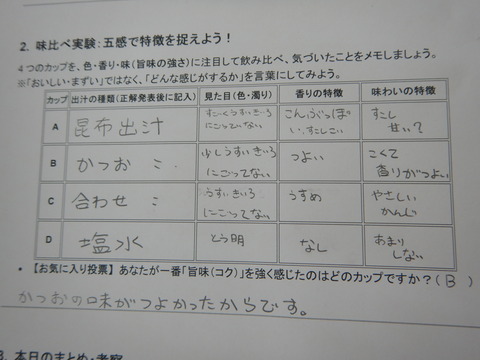 2. 味比べ実験：五感で特徴を捉えよう！
4つのカップを、色・香り・味（旨味の強さ）に注目して飲み比べ、気づいたことをメモしましょう。
※「おいしい・まずい」ではなく、「どんな感じがするか」を言葉にしてみよう。
カップ 出汁の種類（正解発表後に記入） 見た目（色・濁り） 香りの特徴 味わいの特徴
A 昆布出汁 すごくうすいきいろ にごっていない こんぶっぽい、すこしこい すこし甘い？
B かつお 〃 少しうすいきいろ にごってない つよい こくて香りがつよい
C 合わせ 〃 うすいきいろ にごってない うすめ やさしいかんじ
D 塩水 とう明 なし あまりしない
• 【お気に入り投票】 あなたが一番「旨味（コク）」を強く感じたのはどのカップですか？（ B ）
かつおの味がつよかったからです。
3. 本日のまとめ・考察